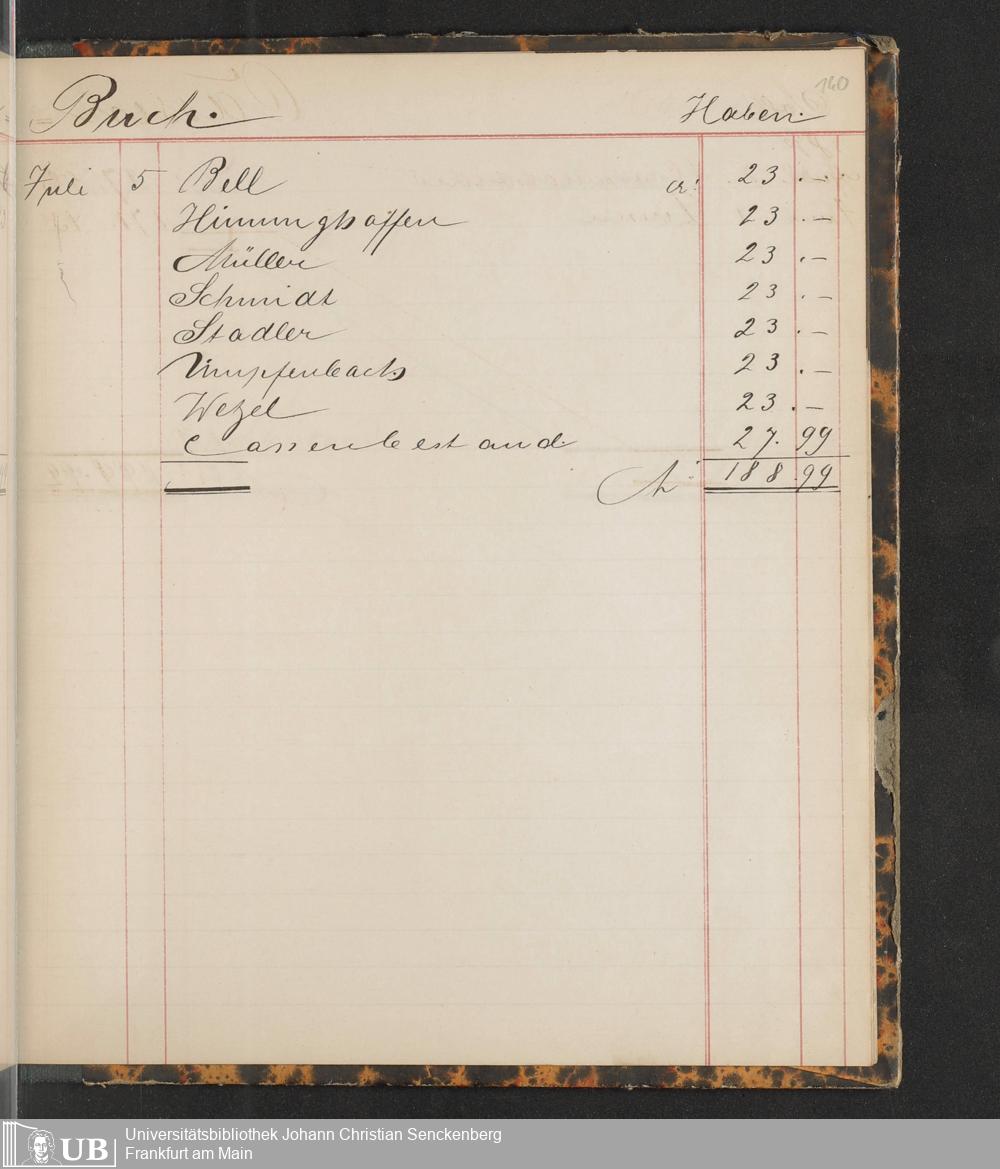 140
Buch. Haben.
Juli 5 Bell a: 23.-
Himmighoffen 23.-
Müller 23.-
Schmidt 23.-
Stadler 23.-
Umpfenbach 23.-
Wetzel 23.-
Cassenbestand 27.99
M: 188.99
UB
Universitätsbibliothek Johann Christian Senckenberg
Frankfurt am Main